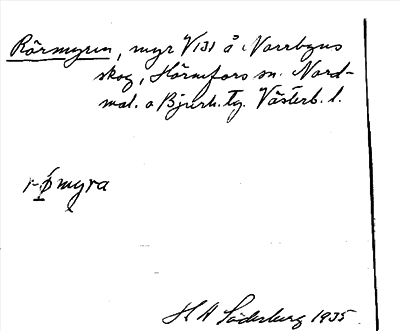 Rörmyren, myr V131 å Norrbyns
skog, Hörnefors sn. Nord-
mal. o Bjurh. tg. Västerb. l.
r-ǿmyra
H A Söderburg 1935.